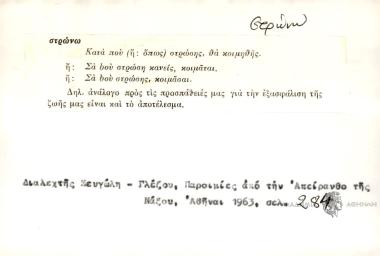 στρώνω
στρώνω
Κατὰ ποὺ (ἤ: ὅπως) στρώσης, θὰ κοιμηθῆς.
ἤ: Σὰ ὀοὺ στρώση κανείς, κοιμᾶται.
ἤ: Σὰ ὀοὺ στρώσης, κοιμᾶσαι.
Δηλ. ἀνάλογο πρὸς τὶς προσπάθειές μας γιὰ τὴν ἐξασφάλιση τῆς
ζωῆς μας εἶναι καὶ τὸ ἀποτέλεσμα.
Διαλεχτῆς Ζευγώλη - Γλέζου, Παροιμίες ἀπό τήν Ἀπείρανθο τῆς
Νάξου, Ἀθῆναι 1963, σελ. 284
ΑΘΗΝΩΝ